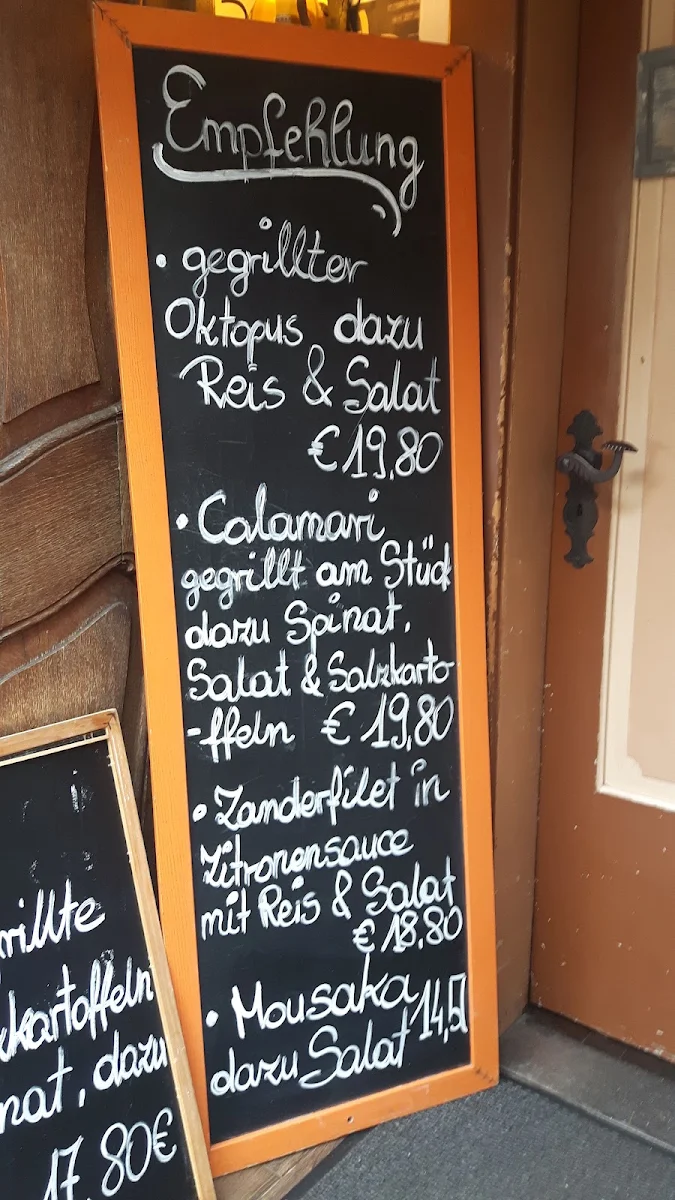 Empfehlung
• gegrillter
Oktopus dazu
Reis & Salat
€ 19,80
• Calamari
gegrillt am Stück
dazu Spinat,
Salat & Salzkarto-
-ffeln € 19,80
• Zanderfilet in
Zitronensauce
mit Reis & Salat
€ 18,80
• Mousaka
dazu Salat
rillte
kartoffeln
nat, dazu
17,80€